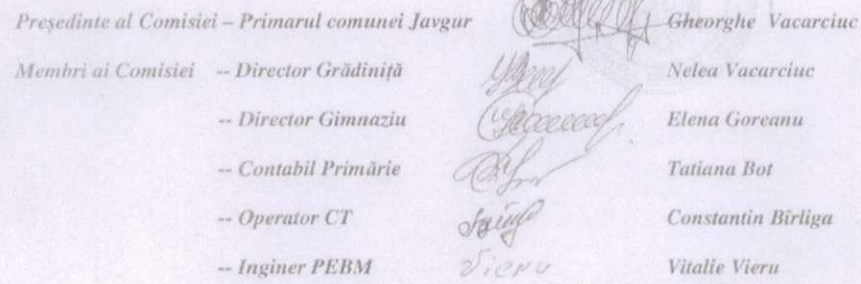 Președinte al Comisiei – Primarul comunei Javgur Gheorghe Vacarciuc
Membri ai Comisiei -- Director Grădiniță Nelea Vacarciuc
-- Director Gimnaziu Elena Goreanu
-- Contabil Primărie Tatiana Bot
-- Operator CT Constantin Bîrliga
-- Inginer PEBM Vieru Vitalie Vieru